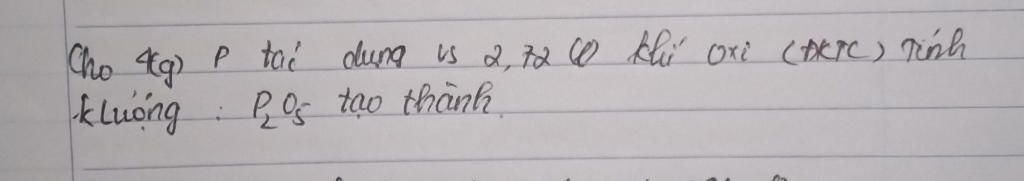 Cho 4(g) P tác dụng vs 2,72 (l) khí oxi (ĐKTC) Tính
k lượng : P₂O₅ tạo thành.